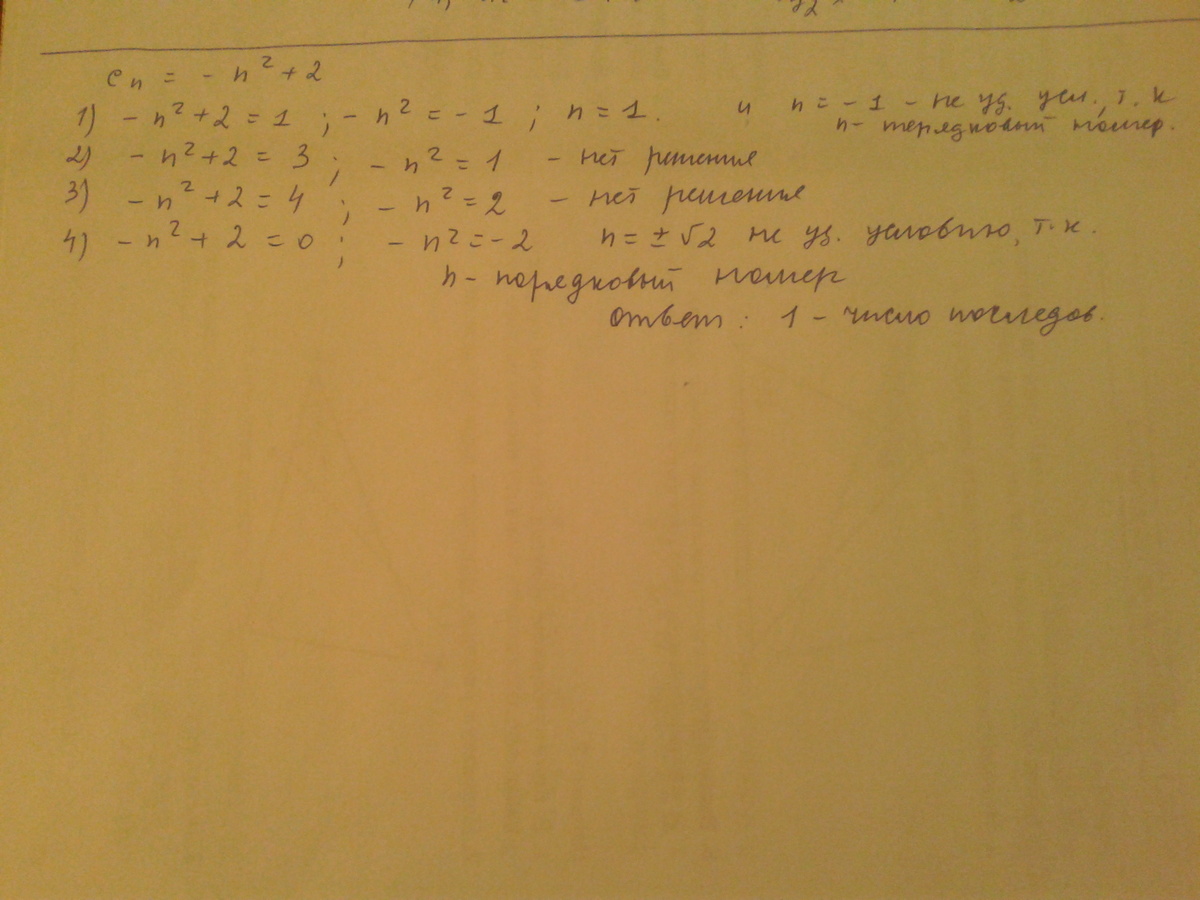 cₙ = - n² + 2
1) - n² + 2 = 1 ; - n² = - 1 ; n = 1. и n = - 1 - не уд. усл., т. к
n - порядковый номер.
2) - n² + 2 = 3 ; - n² = 1 - нет решения
3) - n² + 2 = 4 ; - n² = 2 - нет решения
4) - n² + 2 = 0 ; - n² = - 2 n = ± √2 не уд. условию, т. к.
n - порядковый номер
Ответ : 1 - число последов.